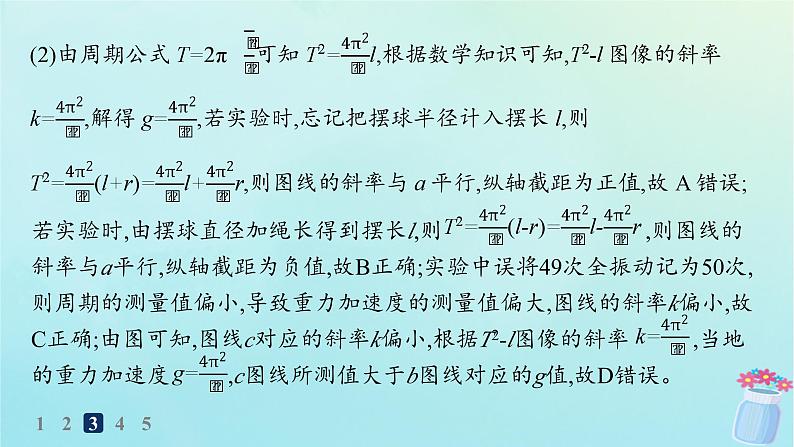 (2)由周期公式 T=2π 可知 T²=4π² l,根据数学知识可知,T²-l 图像的斜率
k=4π² ,解得 g=4π² ,若实验时,忘记把摆球半径计入摆长 l,则
T²=4π² (l+r)=4π² l+4π² r,则图线的斜率与 a 平行,纵轴截距为正值,故 A 错误;
若实验时,由摆球直径加绳长得到摆长l,则T²=4π² (l-r)=4π² l-4π² r ,则图线的
斜率与a平行,纵轴截距为负值,故B正确;实验中误将49次全振动记为50次,
则周期的测量值偏小,导致重力加速度的测量值偏大,图线的斜率k偏小,故
C正确;由图可知,图线c对应的斜率k偏小,根据T²-l图像的斜率 k=4π² ,当地
的重力加速度g=4π² ,c图线所测值大于b图线对应的g值,故D错误。
1 2 3 4 5